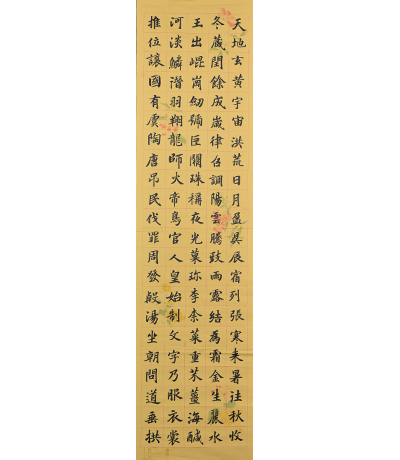 天地玄黃宇宙洪荒日月盈昃辰宿列張寒来暑往秋收
冬藏閏餘成歲律召調陽雲騰致雨露結為霜金生麗水
玉出崐崗劒號巨闕珠稱夜光菓珍李柰菜重芥薑海醎
河淡鱗潛羽翔龍師火帝鳥官人皇始制文字乃服衣裳
推位讓國有虞陶唐吊民伐罪周發殷湯坐朝問道垂拱